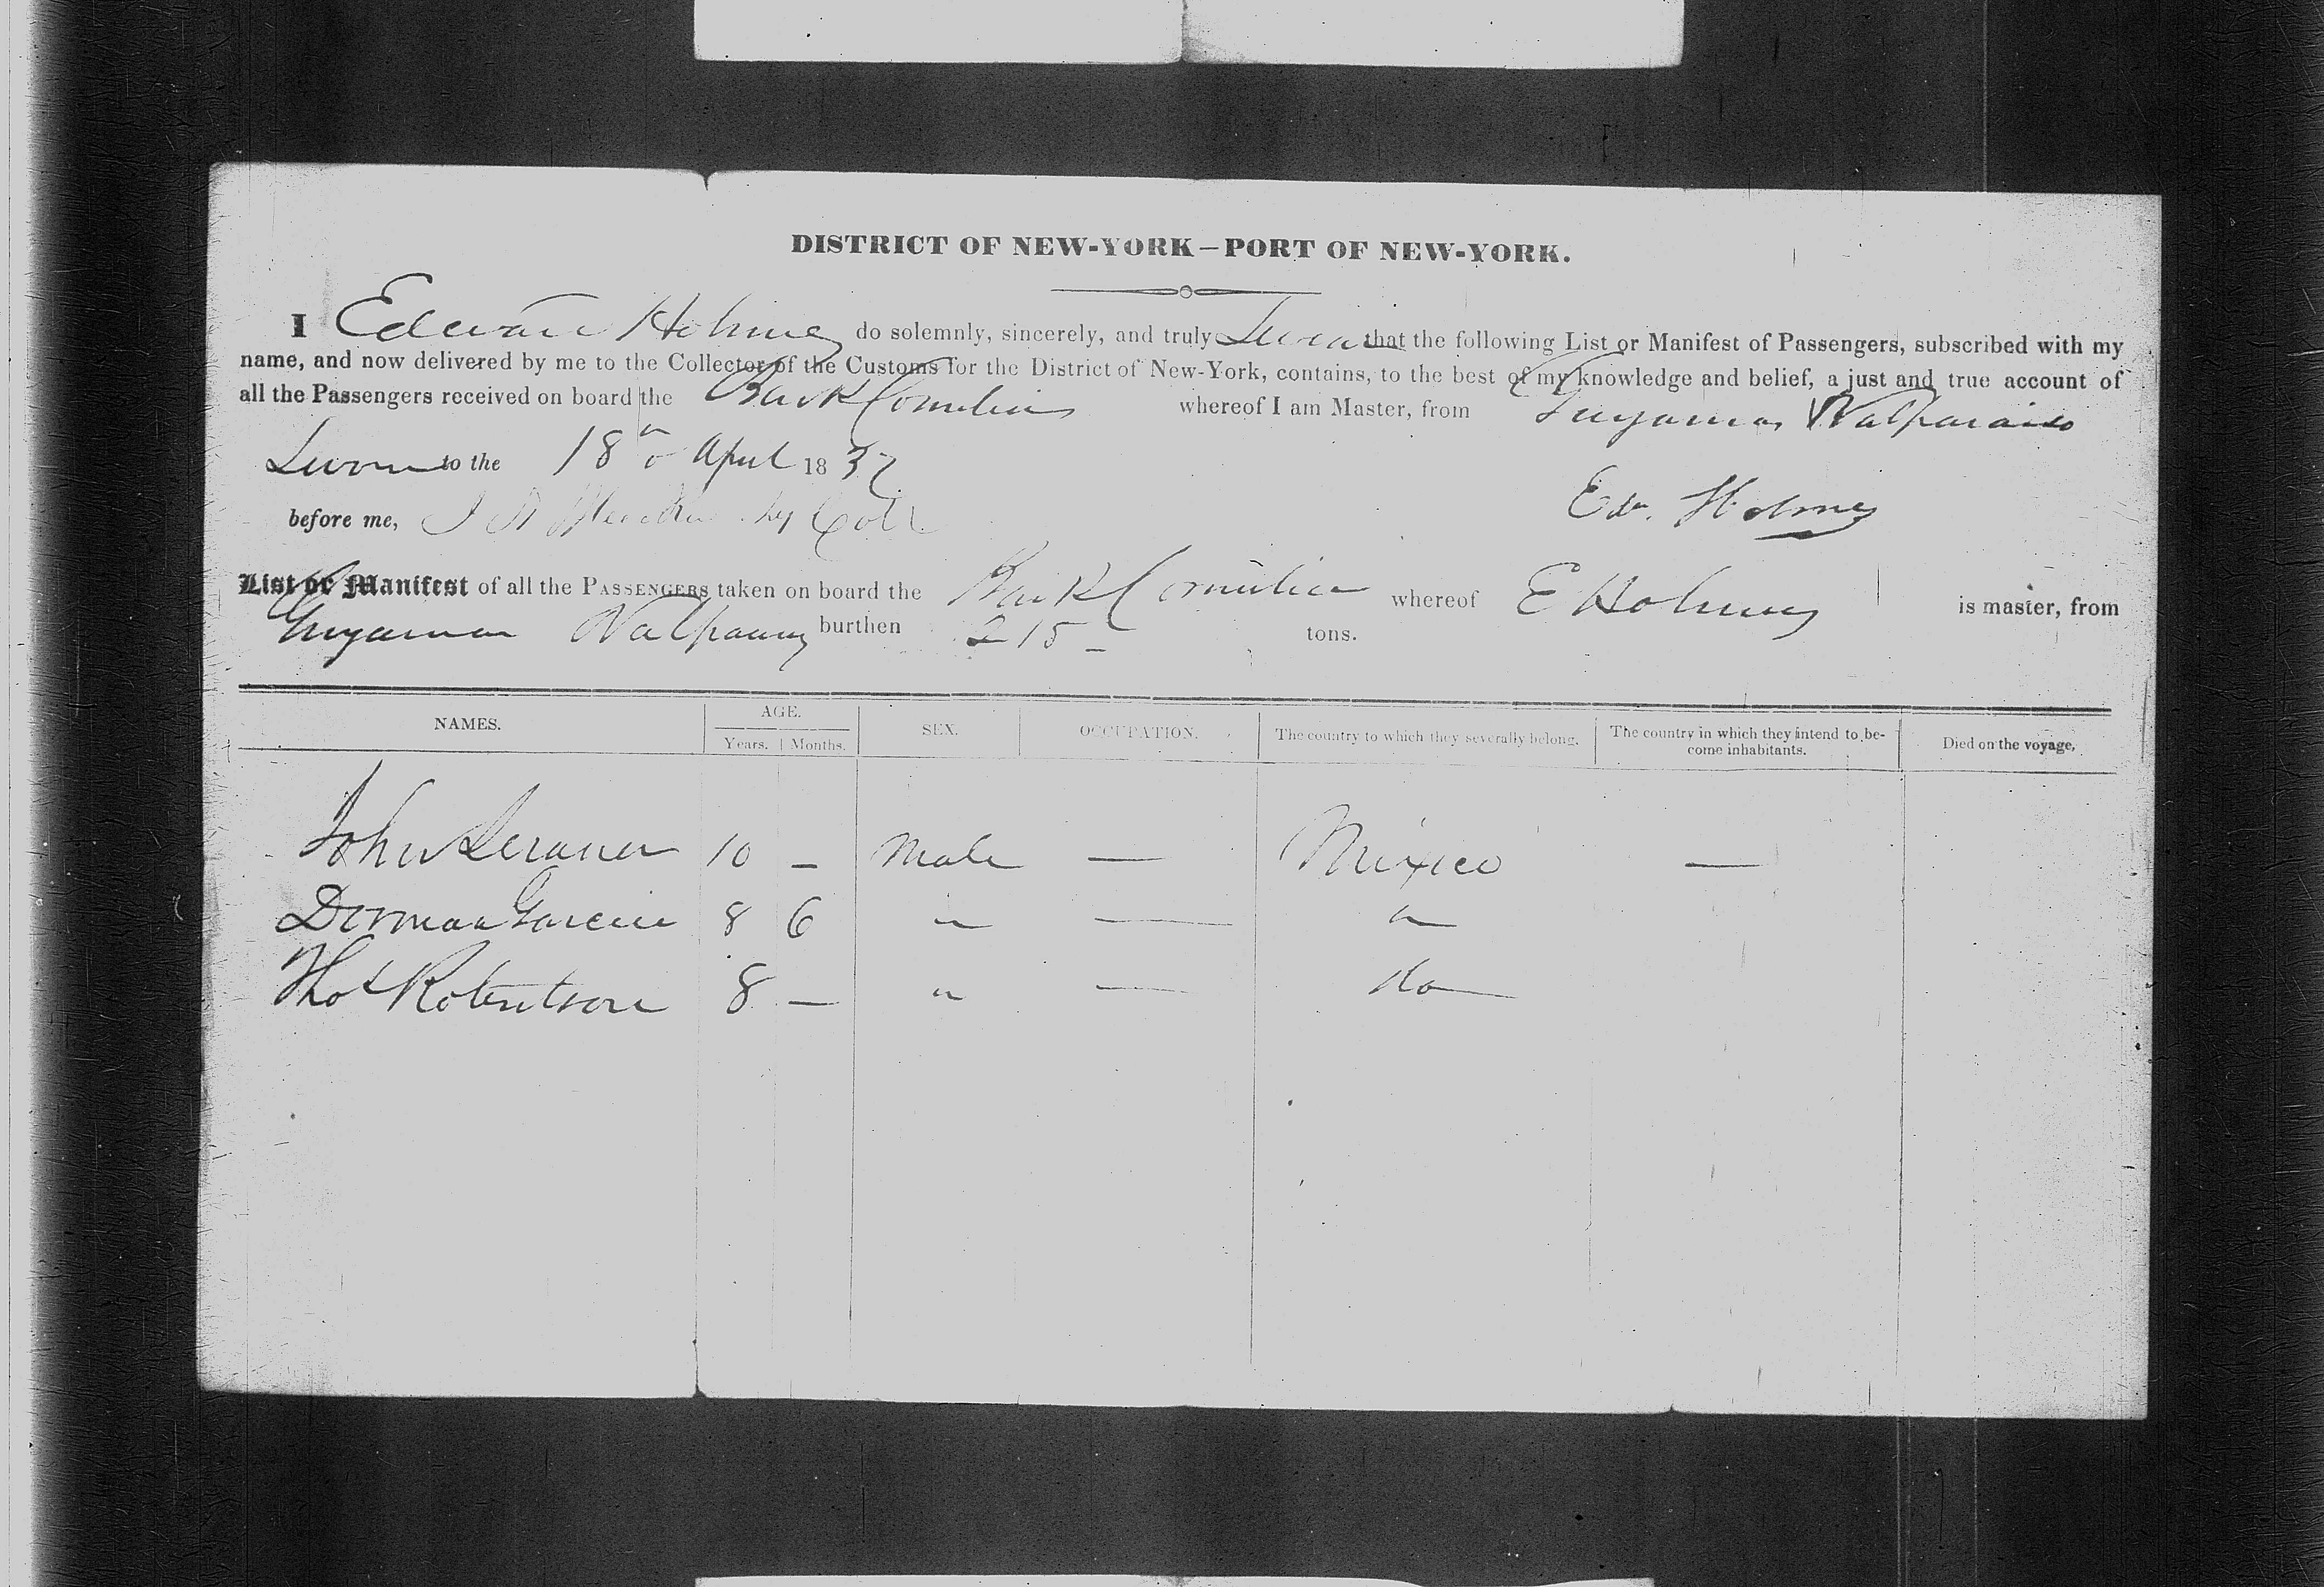 DISTRICT OF NEW-YORK—PORT OF NEW-YORK.
I Edward Holmes do solemnly, sincerely, and truly Swear that the following List or Manifest of Passengers, subscribed with my
name, and now delivered by me to the Collector of the Customs for the District of New-York, contains, to the best of my knowledge and belief, a just and true account of
all the Passengers received on board the Bark Cornelia whereof I am Master, from Guyamas Valparaiso
Sworn to the 18th April 1837
before me,
Edw. Holmes
List or Manifest of all the PASSENGERS taken on board the Bark Cornelia whereof E Holmes is master, from
Guyamas Valparaiso burthen 215 – tons.
NAMES. AGE. SEX. OCCUPATION. The country to which they severally belong. The country in which they intend to be-
come inhabitants. Died on the voyage,
Years. Months.
John 10 — Male — Mexico —
Garcia 8 6 " — "
Thos Robertson 8 — " — do